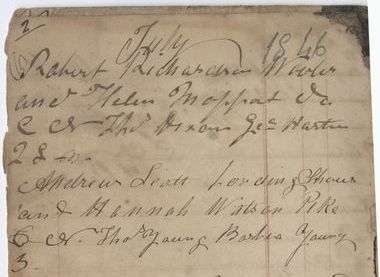 2
July 1846
Robert Richardson Wooler
and Helen Moffat Do
C & Tho Dixon Geo Hartin
2
Andrew Scott Fording Shaws
and Hannah Watson Pike
6 & Thos Young Barbra Young
3